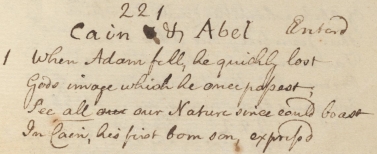 221
Cain & Abel Enterd
1 When Adam fell, he quickly lost
Gods image which he once possest,
See all our Nature since could boast
In Cain, his first born son, express'd